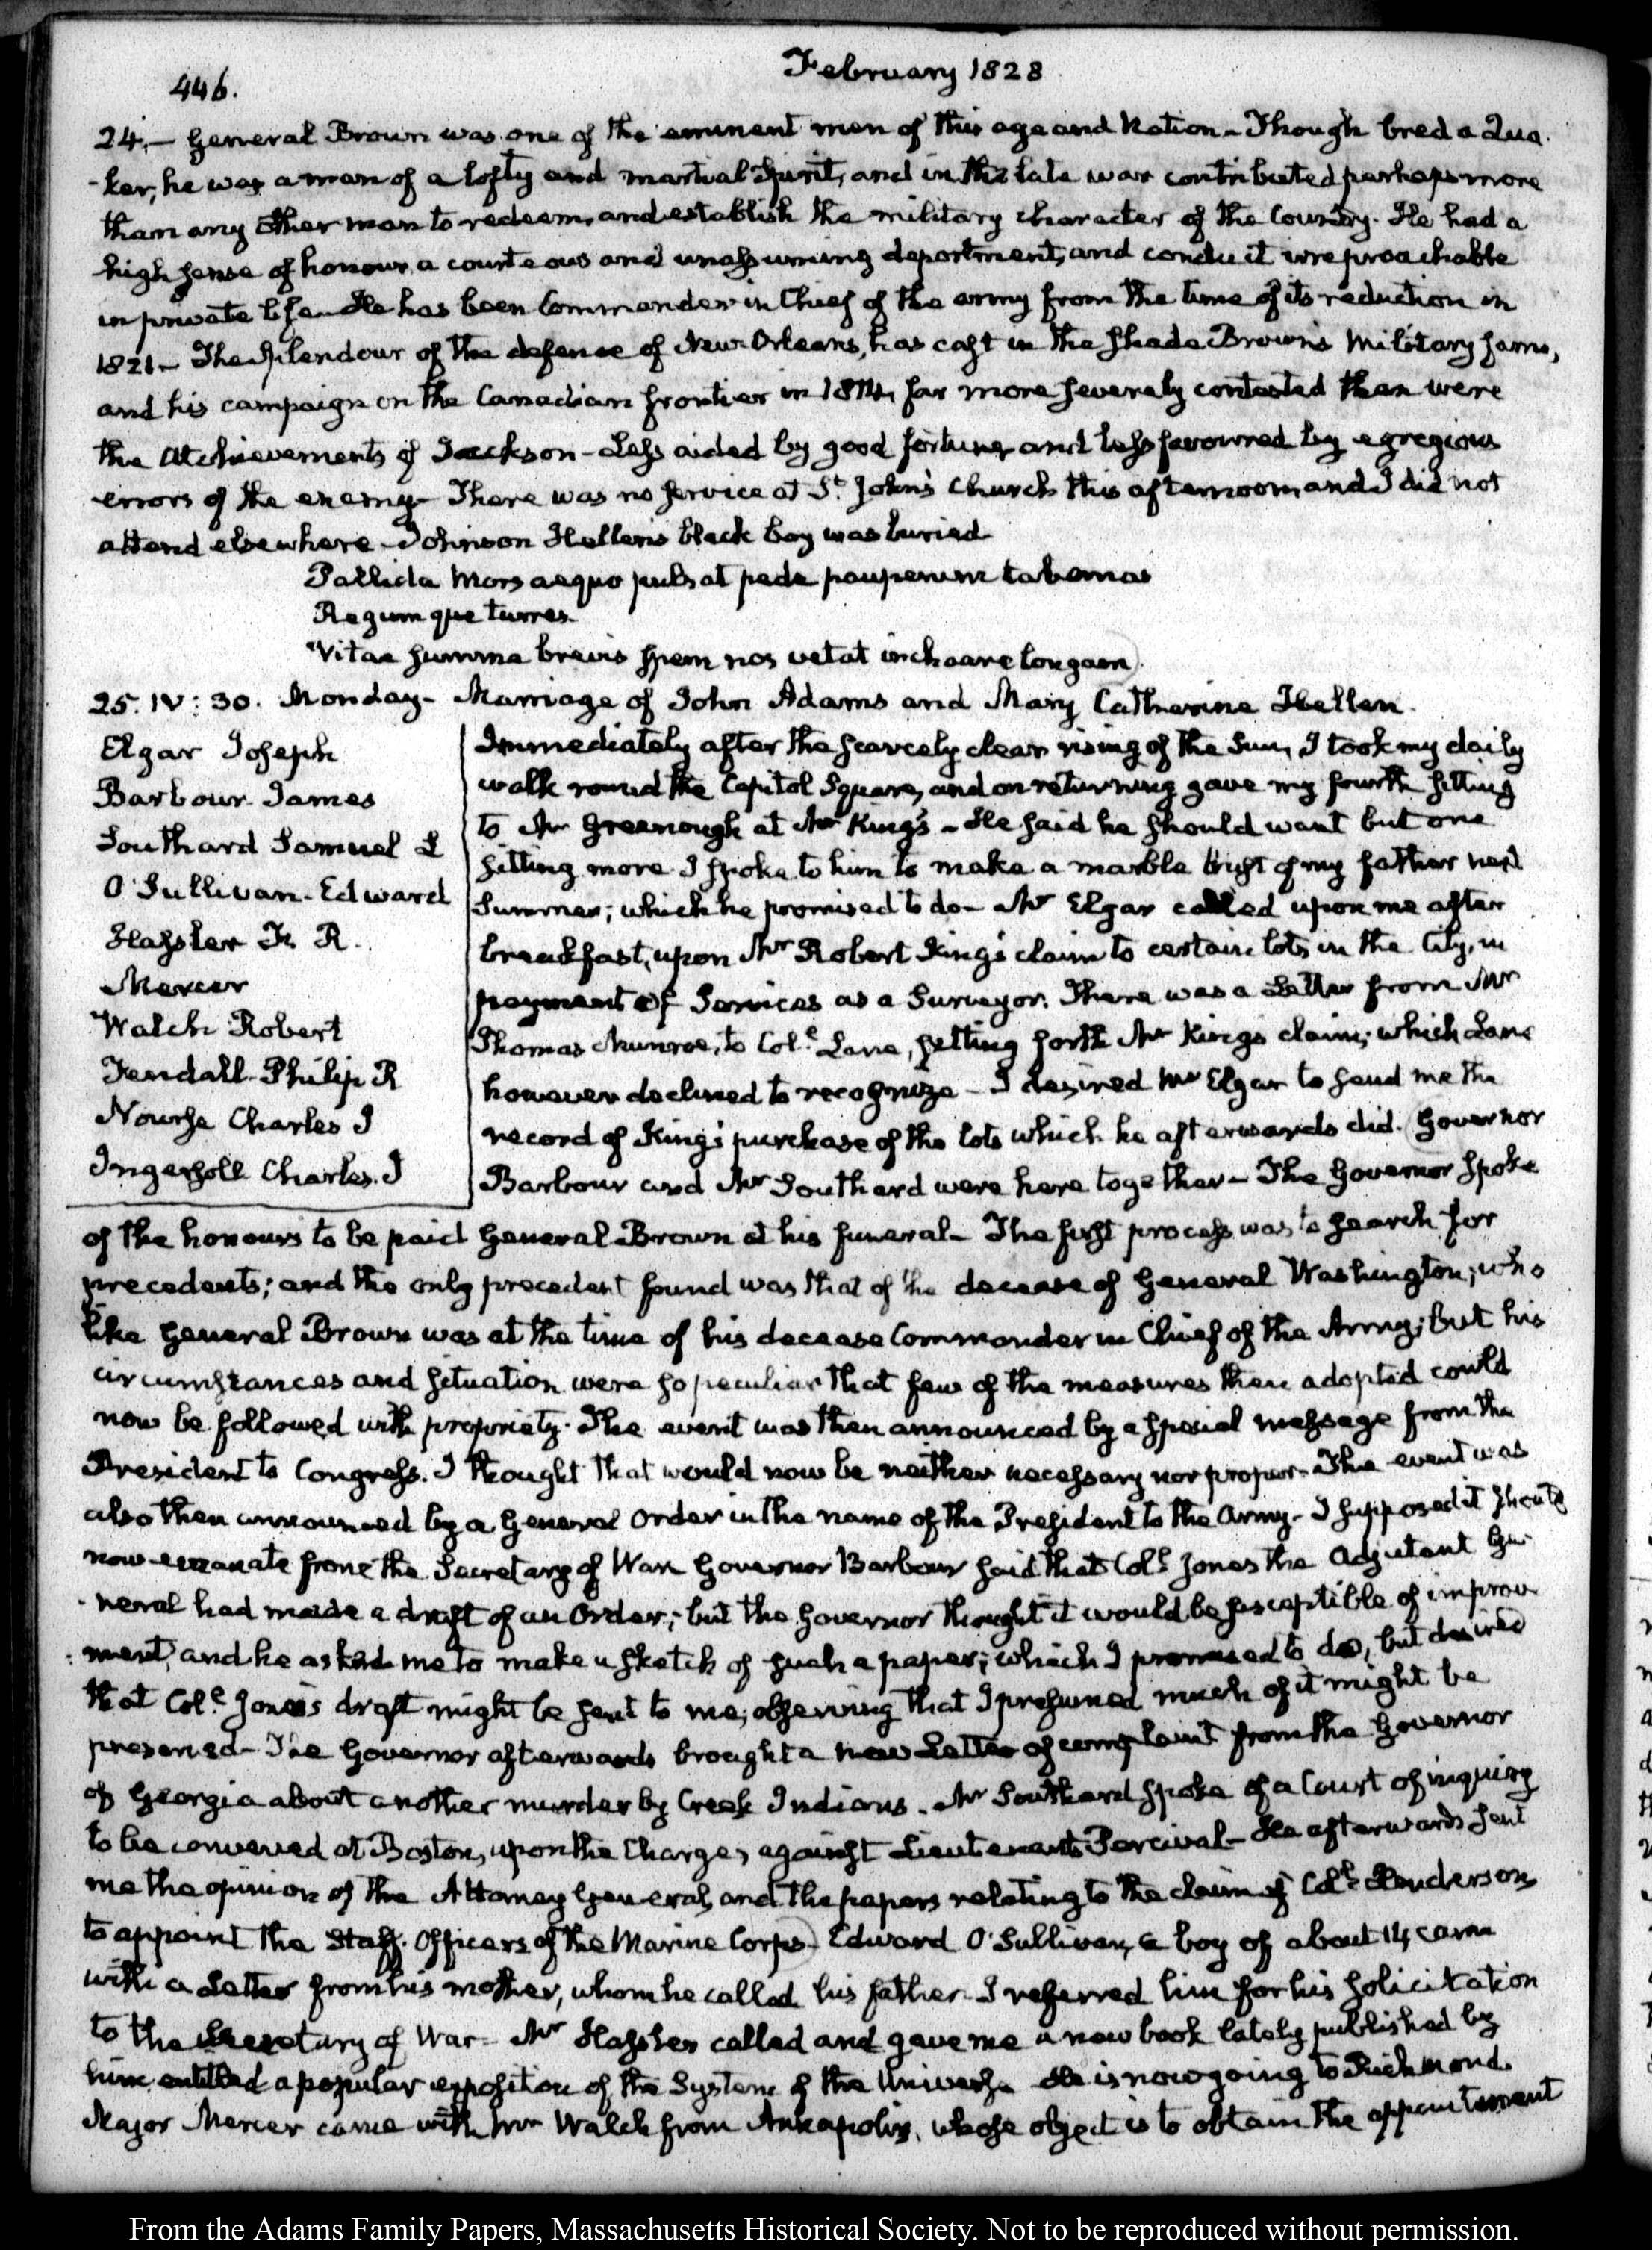 446.
February 1828
24.— General Brown was one of the eminent men of this age and Nation — Though bred a Qua-
-ker, he was a man of a lofty and martial Spirit, and in the late war contributed perhaps more
than any other man to redeem, and establish the military character of the Country. He had a
high sense of honour, a courteous and unassuming deportment, and conduct irreproachable
in private life — He has been Commander in Chief of the army from the time of its reduction in
1821 — The Splendour of the defence of New-Orleans, has cast in the shade Brown's Military fame,
and his campaign on the Canadian frontier in 1814, far more severely contested than were
the Atchievements of Jackson — Less aided by good fortune, and less favoured by egregious
errors of the enemy — There was no service at St. John's Church this afternoon, and I did not
attend elsewhere — Johnson Hellen's black boy was buried —
Pallida Mors aequo pulsat pede pauperum tabernas
Regumque turres.
Vitae summa brevis spem nos vetat inchoare longam.
25. IV: 30. Monday — Marriage of John Adams and Mary Catherine Hellen.
Elgar Joseph
Barbour James
Southard Samuel L
O'Sullivan. Edward
Hassler F. R.
Mercer
Walch Robert
Fendall. Philip R
Nourse Charles J
Ingersoll Charles. J
Immediately after the scarcely clear rising of the Sun, I took my daily
walk round the Capitol Square, and on returning gave my fourth sitting
to Mr Greenough at Mr King's — He said he should want but one
sitting more. I spoke to him to make a marble bust of my father next
Summer; which he promised to do — Mr Elgar called upon me after
breakfast, upon Mr Robert King's claim to certain lots in the City, in
payment of Services as a Surveyor. There was a Letter from Mr
Thomas Munroe, to Coll. Lane, setting forth Mr King's claim; which Lane
however declined to recognize — I desired Mr Elgar to send me the
record of King's purchase of the lots which he afterwards did. Governor
Barbour and Mr Southard were here together — The Governor spoke
of the honours to be paid General Brown at his funeral — The first process was to search for
precedents; and the only precedent found was that of the decease of General Washington; who
like General Brown was at the time of his decease Commander in Chief of the Army; but his
circumstances and situation were so peculiar that few of the measures then adopted could
now be followed with propriety. The event was then announced by a special message from the
President to Congress. I thought that would now be neither necessary nor proper — The event was
also then announced by a General Order in the name of the President to the Army — I supposed it should
now emanate from the Secretary of War. Governor Barbour said that Coll. Jones the Adjutant Ge-
-neral had made a draft of an Order; but the Governor thought it would be susceptible of improve
:ment, and he asked me to make a sketch of such a paper; which I promised to do, but desired
that Coll. Jones's draft might be sent to me; observing that I presumed much of it might be
preserved — The Governor afterwards brought a new Letter of complaint from the Governor
of Georgia about another murder by Creek Indians. Mr Southard spoke of a Court of inquiry
to be convened at Boston, upon the Charges against Lieutenant Percival — He afterwards sent
me the opinion of the Attorney General, and the papers relating to the claim of Coll. Henderson
to appoint the Staff-Officers of the Marine Corps — Edward O'Sullivan, a boy of about 14, came
with a Letter from his mother, whom he called his father. I referred him for his solicitation
to the Secretary of War — Mr Hassler called and gave me a new book lately published by
him, entitled a popular exposition of the System of the Universe — He is now going to Richmond.
Major Mercer came with Mr Walch from Annapolis, whose object is to obtain the appointment
From the Adams Family Papers, Massachusetts Historical Society. Not to be reproduced without permission.